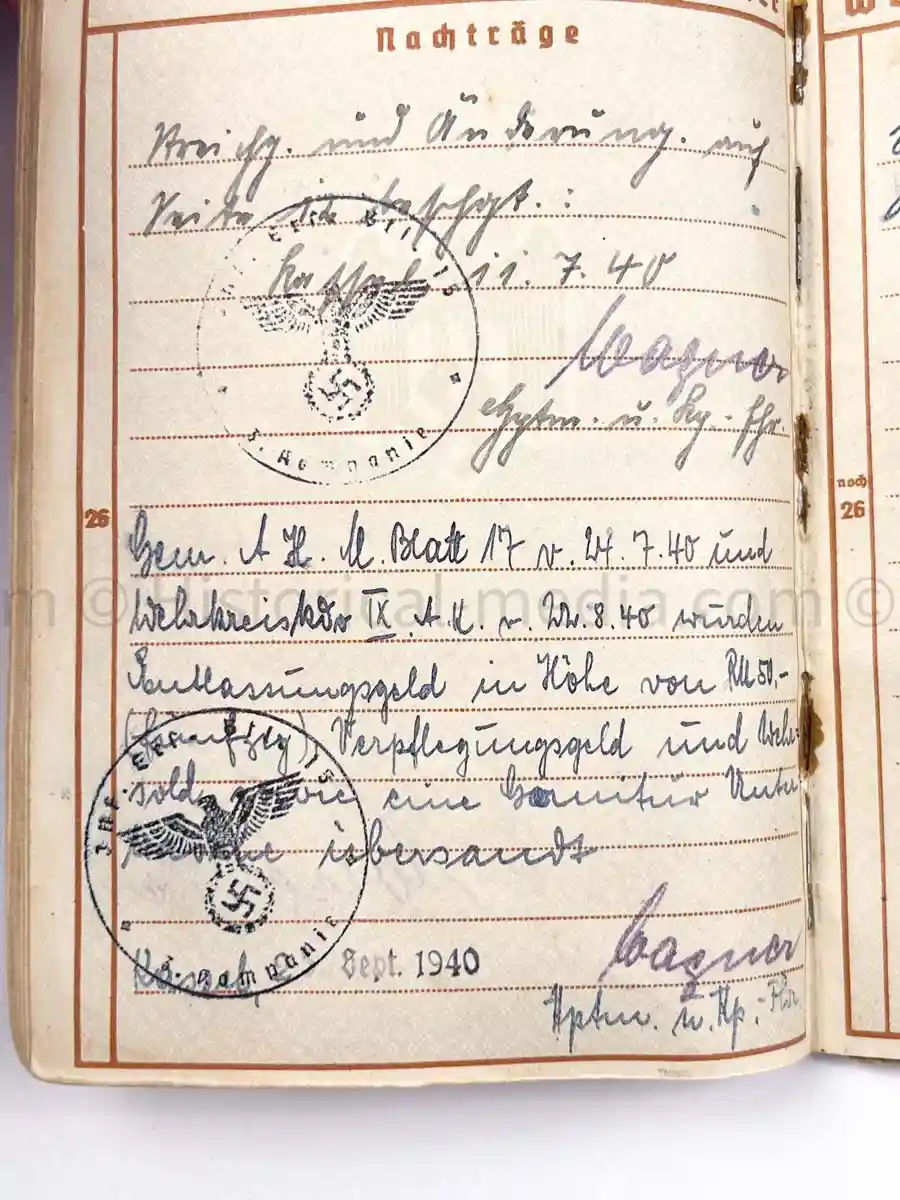 Nachträge
Streichg. und Änderung. auf
Seite 12 beschgt. :
Kassel 11. 7. 40
Wagner
Hptm. u. Kp.-Fhr.
Inf. Ers. Btl. 15
5. Kompanie
26
noch
26
Gem. A H. M. Blatt 17 v. 24. 7. 40 und
Wehrkreiskdo IX. A. K. v. 22. 8. 40 wurden
Entlassungsgeld in Höhe von RM 50,-
(fünfzig), Verpflegungsgeld und Wehr-
sold sowie eine Garnitur Unter
übersandt
© Historical-media.com ©
Inf. Ers. Btl. 15
5. Kompanie
Kassel, Sept. 1940
Wagner
Hptm. u. Kp.-Fhr.